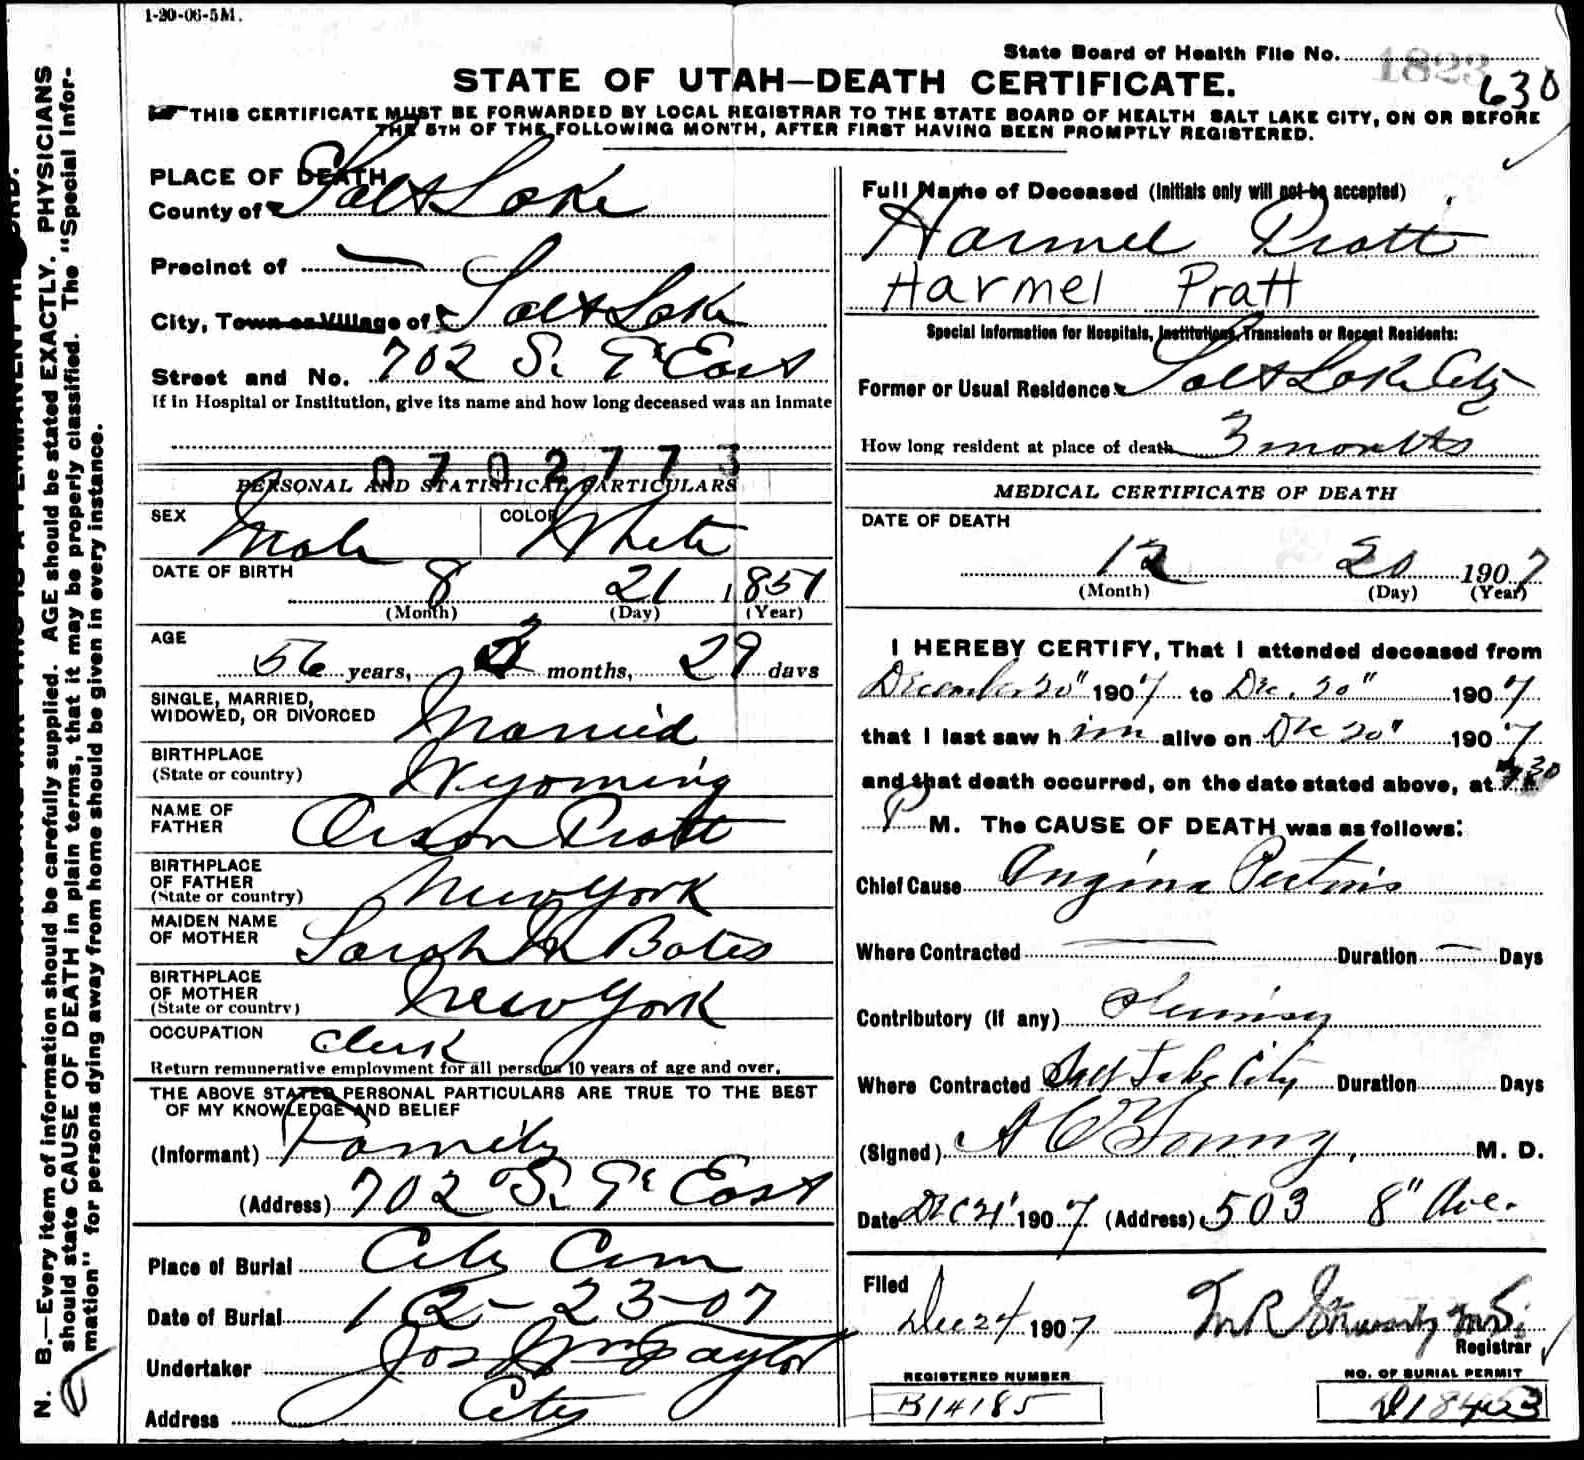 1-20-06-5M.
State Board of Health File No. 1823
630
STATE OF UTAH—DEATH CERTIFICATE.
THIS CERTIFICATE MUST BE FORWARDED BY LOCAL REGISTRAR TO THE STATE BOARD OF HEALTH SALT LAKE CITY, ON OR BEFORE
THE 5TH OF THE FOLLOWING MONTH, AFTER FIRST HAVING BEEN PROMPTLY REGISTERED.
N. B.—Every item of information should be carefully supplied. AGE should be stated EXACTLY. PHYSICIANS
should state CAUSE OF DEATH in plain terms, that it may be properly classified. The "Special Infor-
mation" for persons dying away from home should be given in every instance.
PLACE OF DEATH
County of Salt Lake
Precinct of —
City, Town or Village of Salt Lake
Street and No. 702 S. 9" East
If in Hospital or Institution, give its name and how long deceased was an inmate
0702773
PERSONAL AND STATISTICAL PARTICULARS
SEX Male COLOR White
DATE OF BIRTH
8 21 1851
(Month) (Day) (Year)
AGE
56 years, 3 months, 29 days
SINGLE, MARRIED,
WIDOWED, OR DIVORCED Married
BIRTHPLACE
(State or country) Wyoming
NAME OF
FATHER Orson Pratt
BIRTHPLACE
OF FATHER
(State or country) New York
MAIDEN NAME
OF MOTHER Sarah M Bates
BIRTHPLACE
OF MOTHER
(State or country) New York
OCCUPATION Clerk
Return remunerative employment for all persons 10 years of age and over.
THE ABOVE STATED PERSONAL PARTICULARS ARE TRUE TO THE BEST
OF MY KNOWLEDGE AND BELIEF
(Informant) Family
(Address) 702 S. 9" East
Place of Burial City Cem
Date of Burial 12-23-07
Undertaker Jos Wm Taylor
Address City
Full Name of Deceased (Initials only will not be accepted)
Harmel Pratt
Harmel Pratt
Special Information for Hospitals, Institutions, Transients or Recent Residents:
Former or Usual Residence Salt Lake City
How long resident at place of death 3 months
MEDICAL CERTIFICATE OF DEATH
DATE OF DEATH
12 20 1907
(Month) (Day) (Year)
I HEREBY CERTIFY, That I attended deceased from
December 20" 1907 to Dec. 20" 1907
that I last saw him alive on Dec 20" 1907
and that death occurred, on the date stated above, at 7.30
P M. The CAUSE OF DEATH was as follows:
Chief Cause Angina Pectoris
Where Contracted — Duration — Days
Contributory (if any) Pleurisy
Where Contracted Salt Lake City Duration Days
(Signed) A C Young, M. D.
Date Dec 21" 1907 (Address) 503 8" Ave.
Filed
Dec 24 1907 M R Stewart M.D.
Registrar
REGISTERED NUMBER
B14185
NO. OF BURIAL PERMIT
D18403